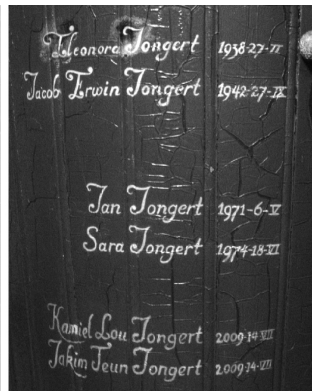 Eleonora Jongert 1938-27-II
Jacob Erwin Jongert 1942-27-IX
Jan Jongert 1971-6-V
Sara Jongert 1974-18-VI
Kamiel Lou Jongert 2009-14-VII
Jakim Teun Jongert 2009-14-VII